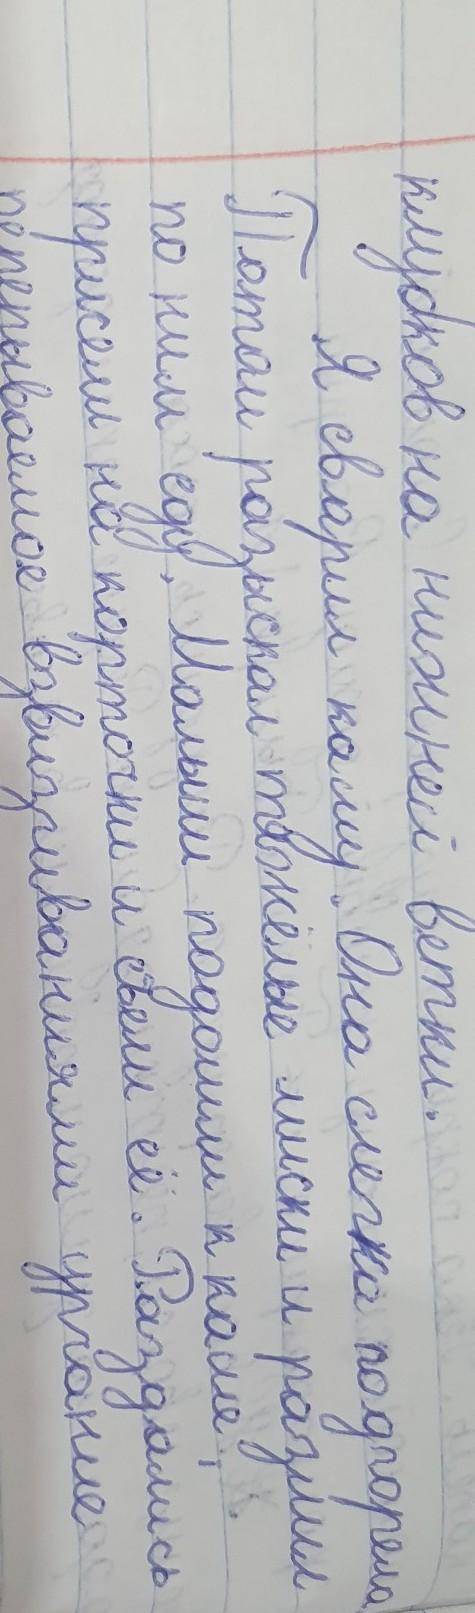 клубков на нижней ветки.
Я сварил кашу. Она слегка подгорела
Потом разыскал тяжёлые миски и разлил
по ним еду. Малыши подошли к каше,
присели на корточки и съели её. Раздолись
перепываемое взвизгиваниями урчание